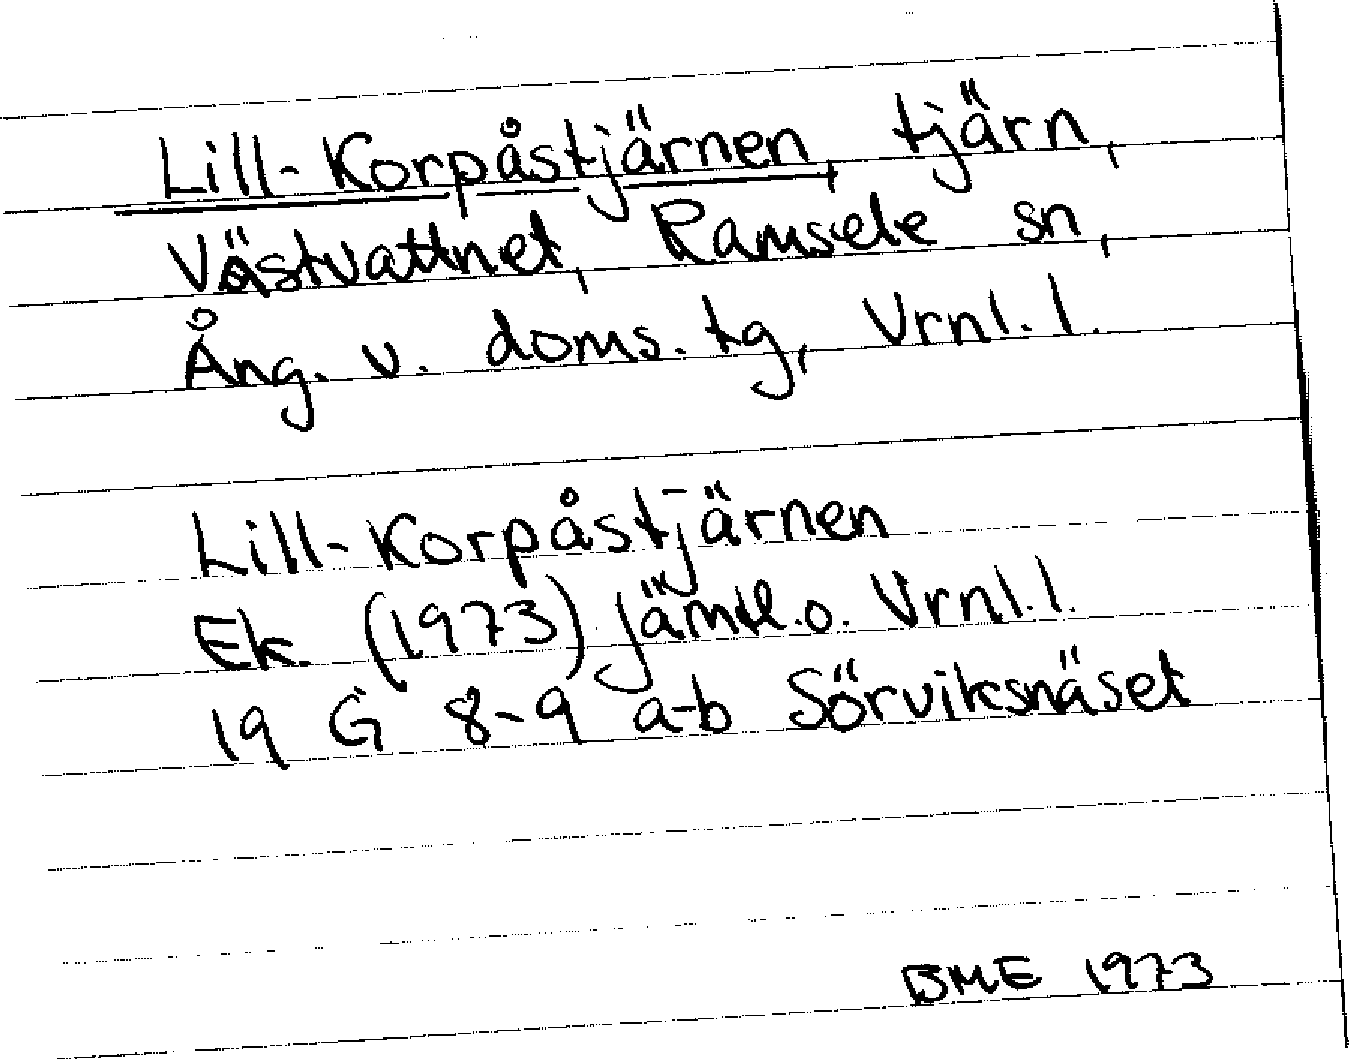 Lill-Korpåstjärnen, tjärn,
Västvattnet, Ramsele sn,
Ång. v. doms. tg, Vrnl. l.
Lill-Korpåstjärnen
Ek. (1973) jämtl.o. Vrnl.l.
19 G 8-9 a-b Sörviksnäset
BME 1973